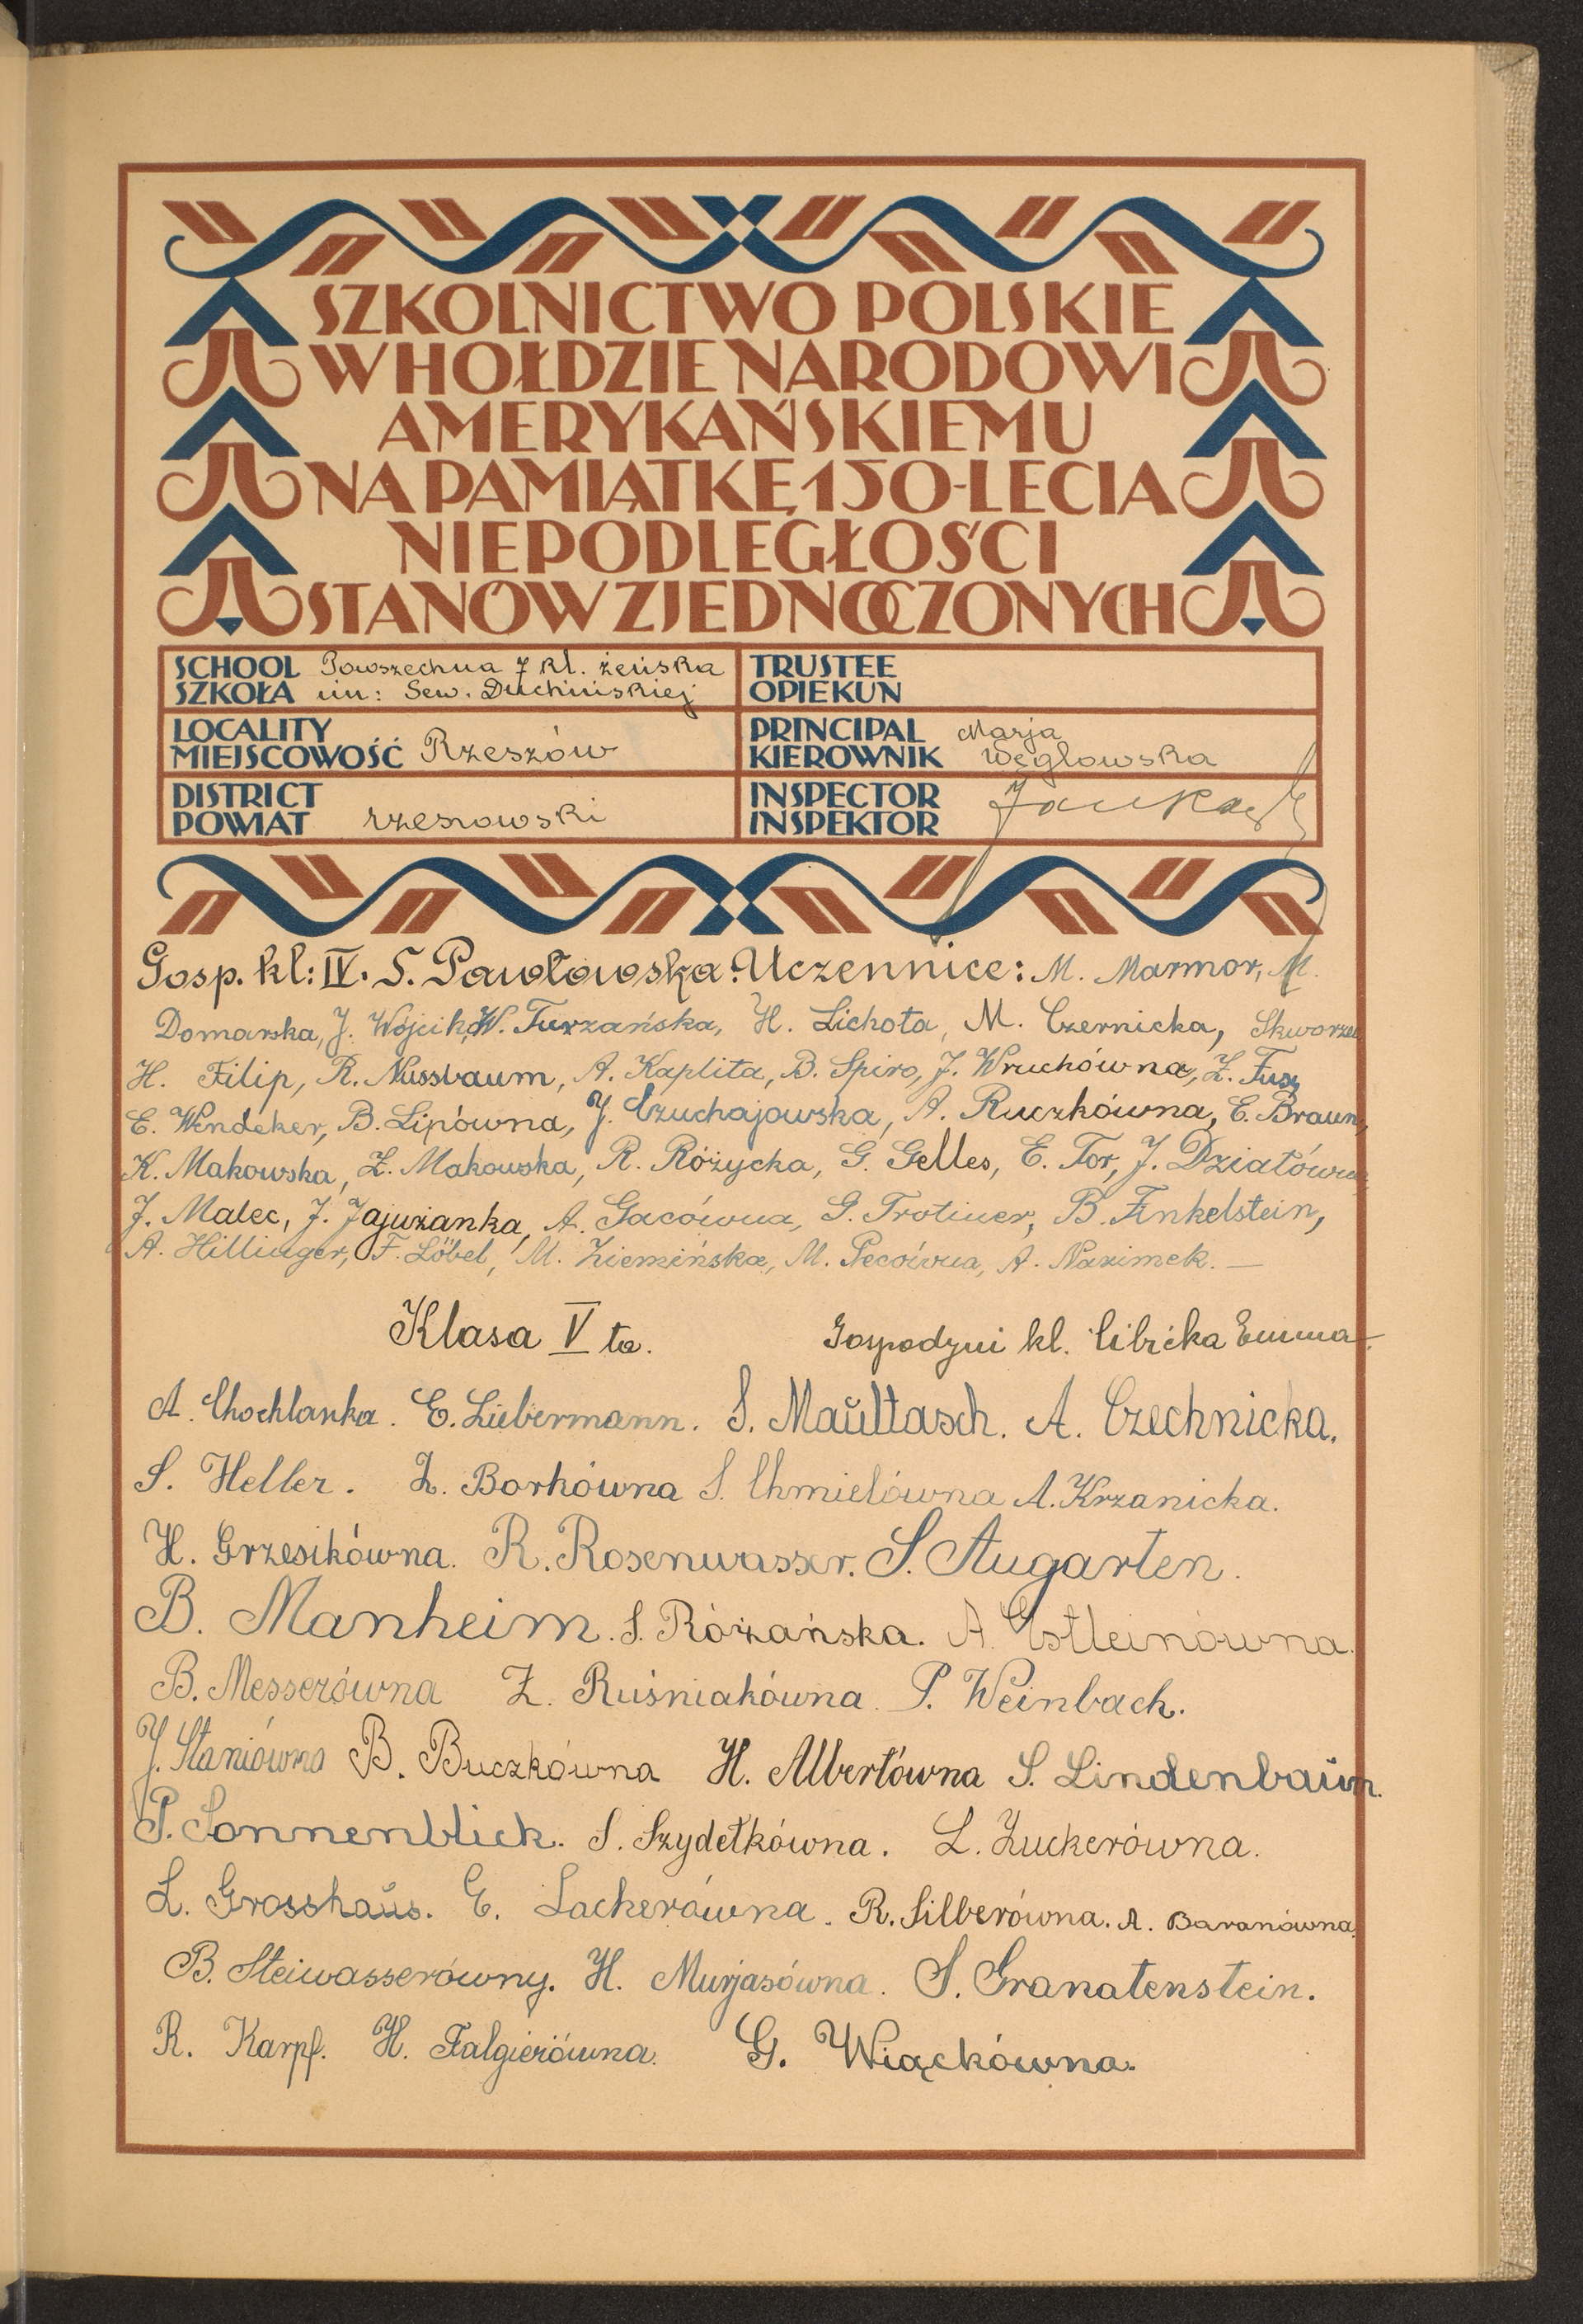 SZKOLNICTWO POLSKIE
W HOŁDZIE NARODOWI
AMERYKAŃSKIEMU
NA PAMIĄTKĘ 150-LECIA
NIEPODLEGŁOŚCI
STANÓW ZJEDNOCZONYCH
SCHOOL Powszechna 7 kl. żeńska
SZKOŁA im: Sew. Duchińskiej
TRUSTEE
OPIEKUN
LOCALITY
MIEJSCOWOŚĆ Rzeszów
PRINCIPAL Marja
KIEROWNIK Węglowska
DISTRICT
POWIAT rzeszowski
INSPECTOR
INSPEKTOR
Gosp. kl: IV. S. Pawłowska. Uczennice: M. Marmor, M.
Domarska, J. Wójcik, W. Turzańska, H. Lichota, M. Czernicka, Skworzec
H. Filip, R. Nussbaum, A. Kaplita, B. Spiro, J. Wruchówna, Z. Fusz
E. Wendeker, B. Lipówna, J. Czuchajowska, A. Ruczkówna, E. Braun,
K. Makowska, Z. Makowska, R. Różycka, G. Gelles, E. Tor, J. Działówna
J. Malec, J. Jajużanka, A. Gacówna, G. Trotiner, B. Finkelstein,
A. Hillinger, F. Löbel, M. Ziemińska, M. Pecówna, A. Naximek. —
Klasa V ta. Gospodyni kl. Cibicka Emma.
A. Chochlanka. E. Liebermann. S. Maŭltasch. A. Czechnicka.
S. Heller. Z. Borkówna S. Chmielówna A. Krzanicka.
H. Grzesikówna. R. Rosenwasser. S. Augarten.
B. Manheim. S. Różańska. A. Estleinówna.
B. Messerówna Z. Ruśniakówna. P. Weinbach.
J. Staniówna B. Buczkówna H. Albertówna S. Lindenbaŭm.
P. Sonnenblick. S. Szydełkówna. L. Zuckerówna.
L. Grosshaŭs. E. Lackerówna. R. Silberówna. A. Baranówna.
B. Steiwasserówny. H. Murjasówna. S. Granatenstein.
R. Karpf. H. Falgierówna. G. Wiąckówna.